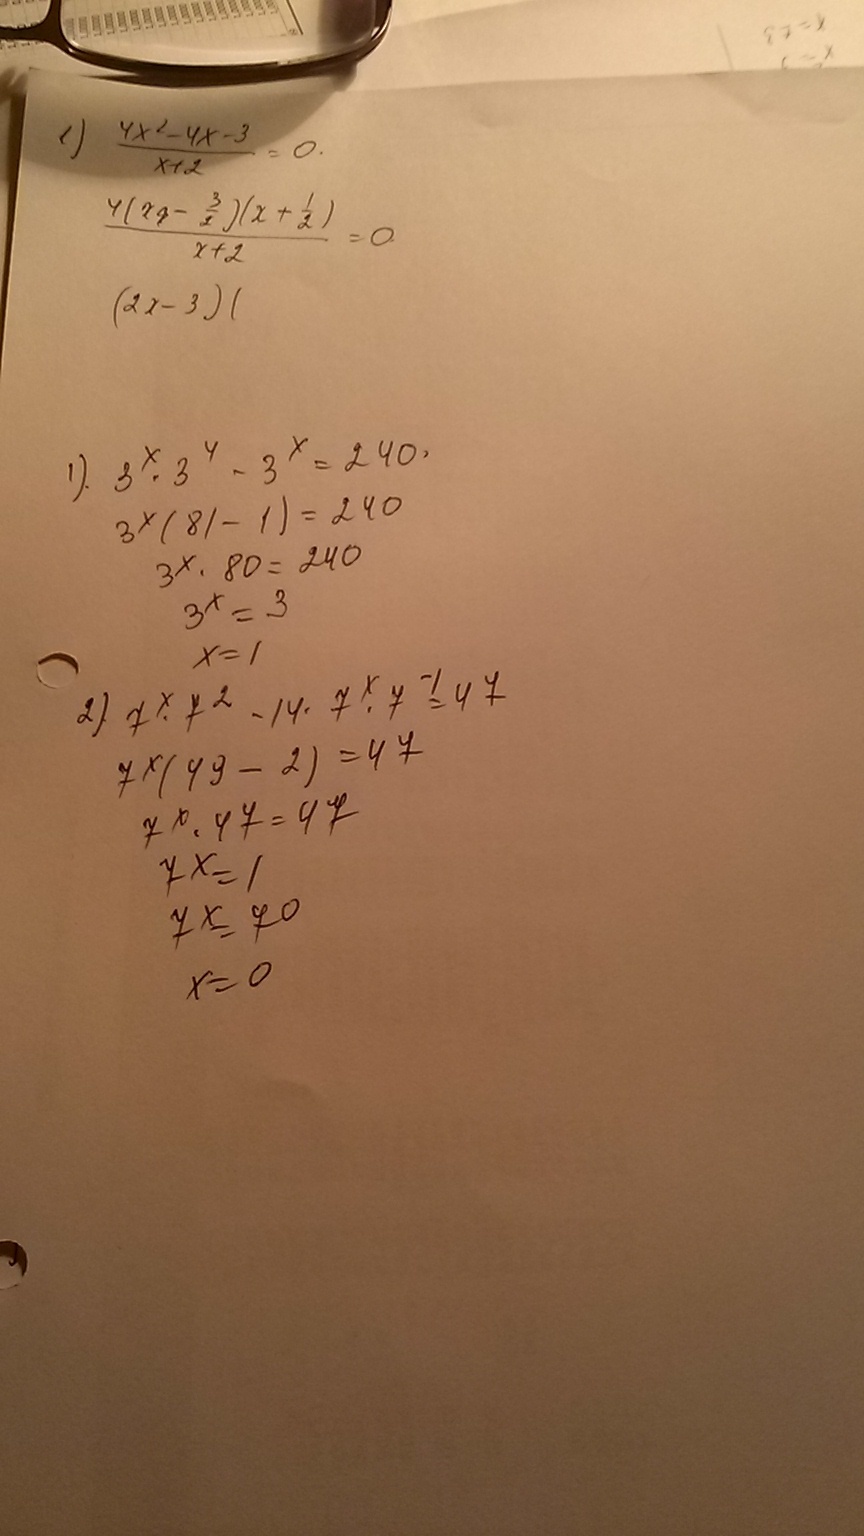 1) (4x² - 4x - 3)/(x+2) = 0.
4(x - 3/2)(x + 1/2)/(x+2) = 0
(2x - 3)(
1). 3ˣ · 3⁴ - 3ˣ = 240.
3ˣ(81 - 1) = 240
3ˣ · 80 = 240
3ˣ = 3
x = 1
2) 7ˣ · 7² - 14 · 7ˣ · 7⁻¹ = 47
7ˣ(49 - 2) = 47
7ˣ · 47 = 47
7ˣ = 1
7ˣ = 7⁰
x = 0